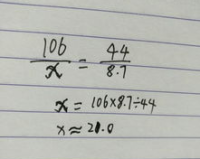 106/x = 44/8.7
x = 106×8.7÷44
x ≈ 21.0